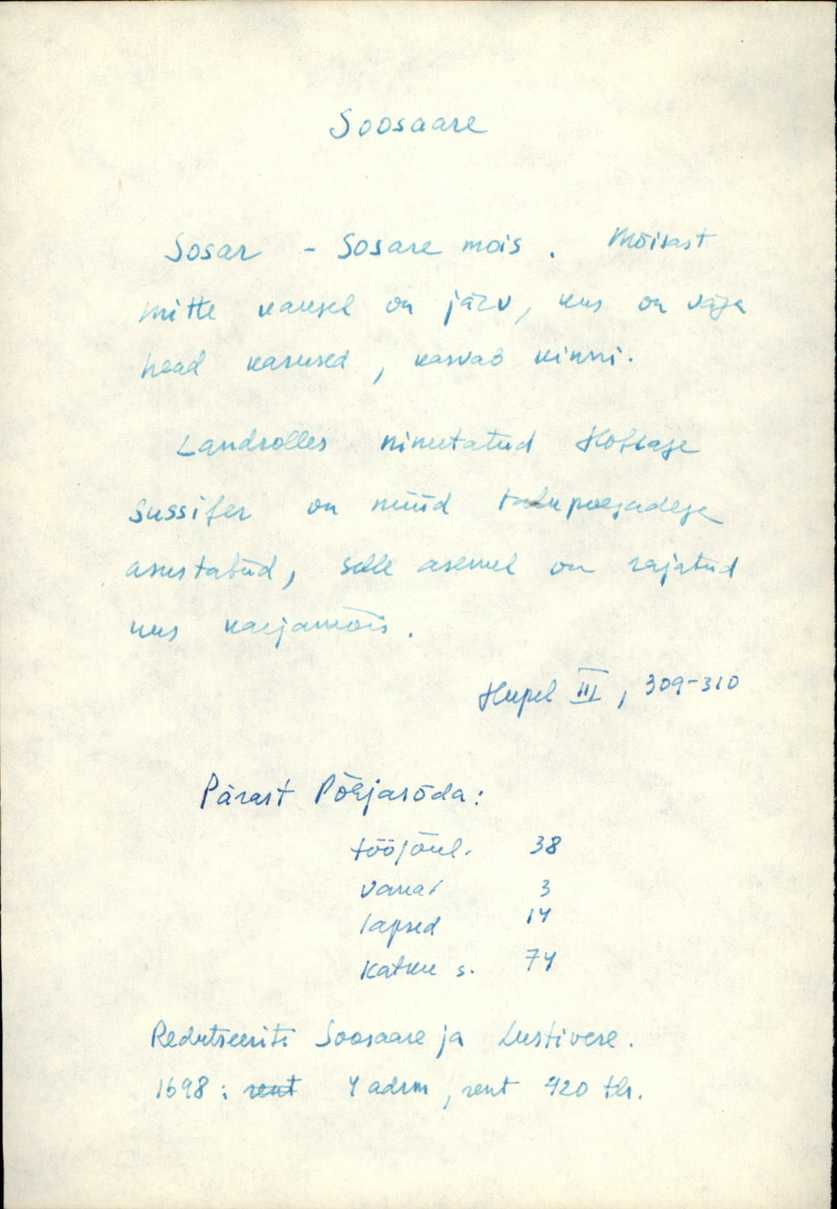 Soosaare
Sosar - Sosare mois. Mõisast
mitte kaugel on järv, kus on väga
head karused, kasvab kinni.
Landrolles nimetatud Hoflage
Sussifer on nüüd talupoegadega
asustatud, selle asemel on rajatud
uus karjamõis.
Hupel III, 309-310
Pärast Põhjasõda:
tööjõul. 38
vanai 3
lapsed 14
katku s. 74
Redutseeriti Soosaare ja Lustivere.
1698: rent 4 adrm, rent 420 tlr.